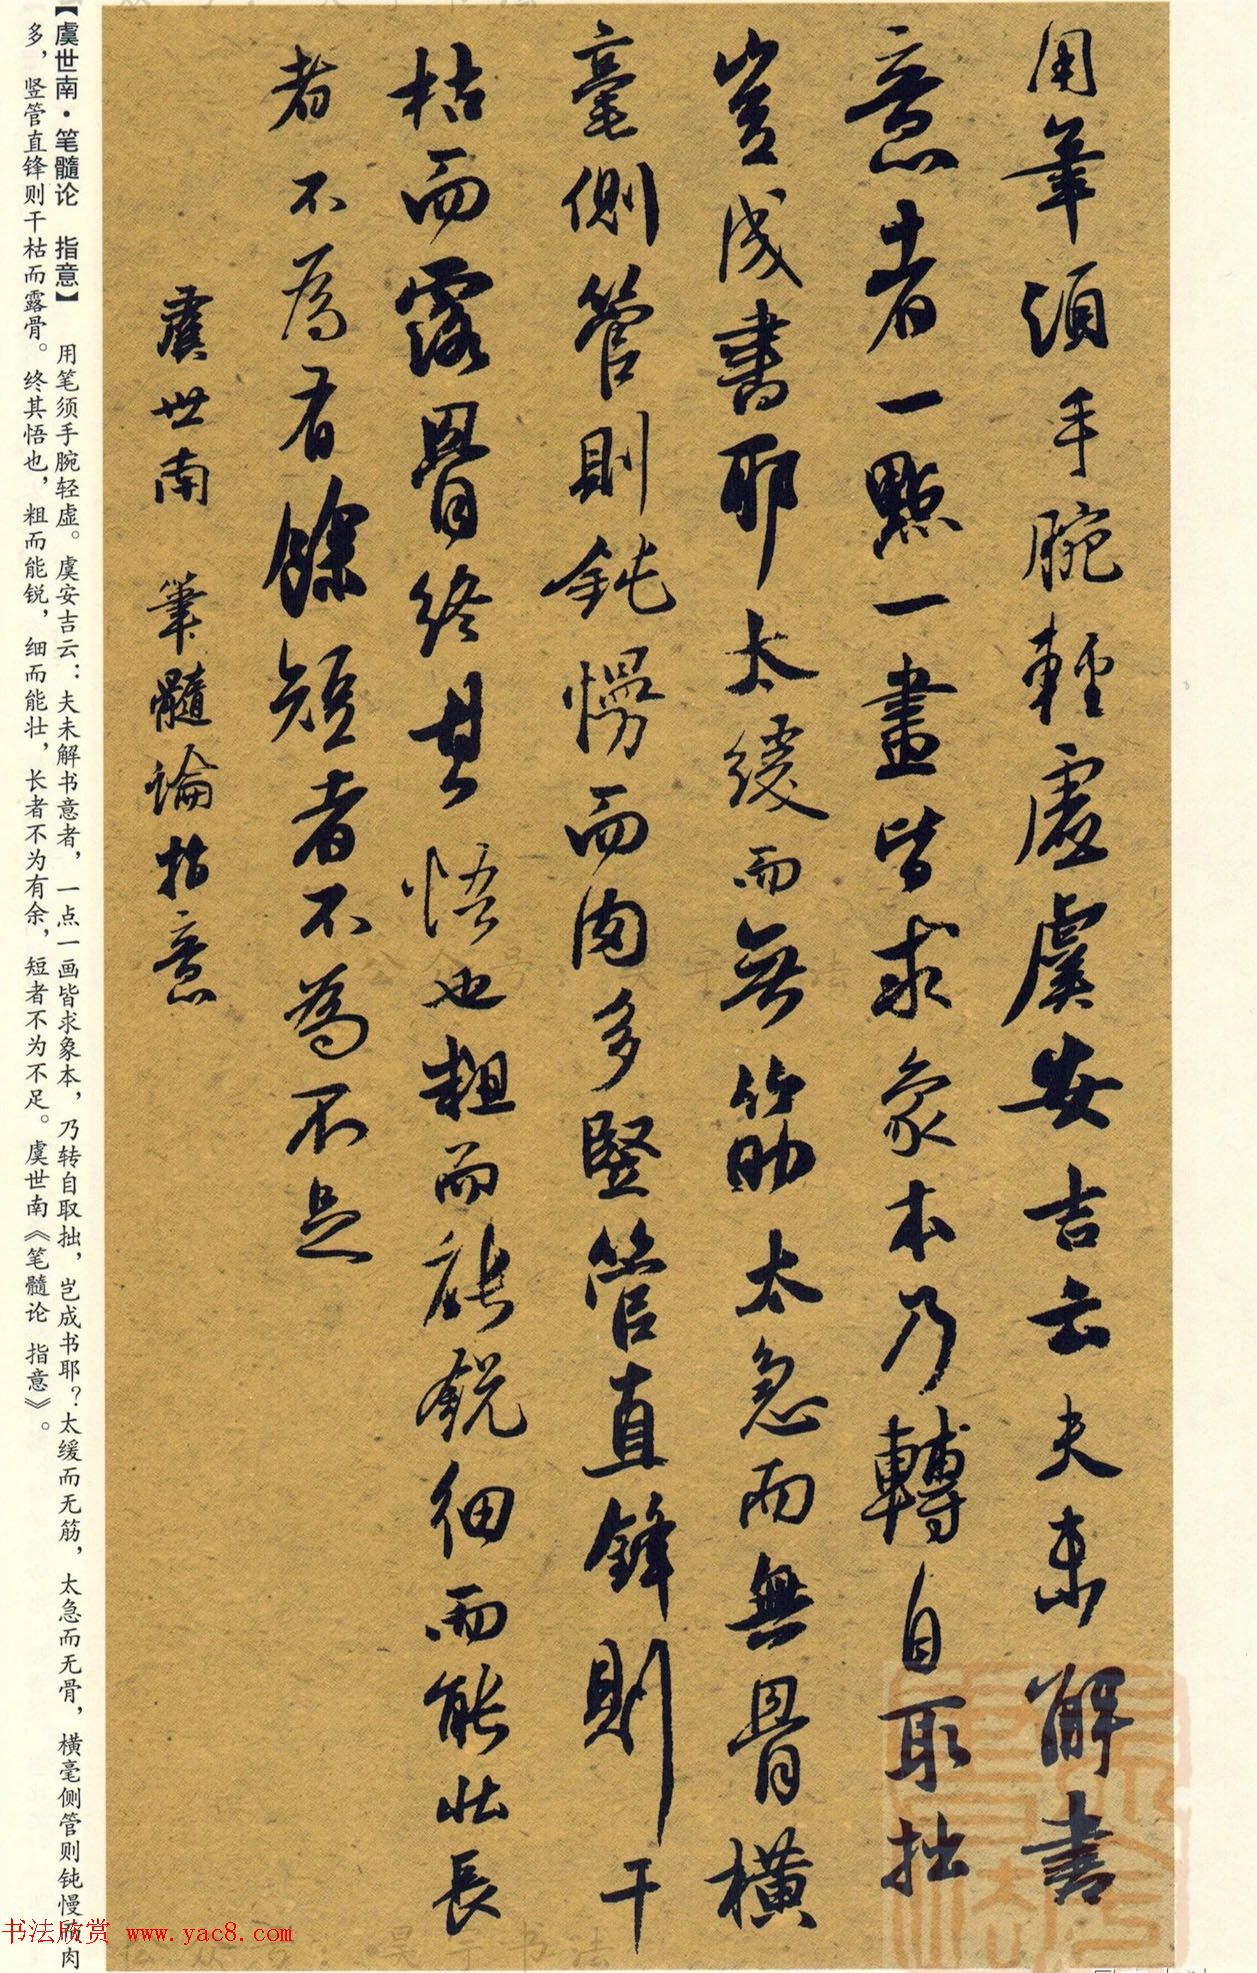 用筆須手腕輕虛虞安吉云夫未解書
意者一點一畫皆求象本乃轉自取拙
豈成書耶太緩而無筋太急而無骨橫
毫側管則鈍慢而肉多竪管直鋒則干
枯而露骨終其悟也粗而能銳細而能壯長
者不為有餘短者不為不足
虞世南 筆髓論指意
【虞世南·笔髓论 指意】 用笔须手腕轻虚。虞安吉云：夫未解书意者，一点一画皆求象本，乃转自取拙，岂成书耶？太缓而无筋，太急而无骨，横毫侧管则钝慢而肉
多，竖管直锋则干枯而露骨。终其悟也，粗而能锐，细而能壮，长者不为有余，短者不为不足。虞世南《笔髓论 指意》。
书法欣赏 www.yac8.com
公众号：吴宇书法